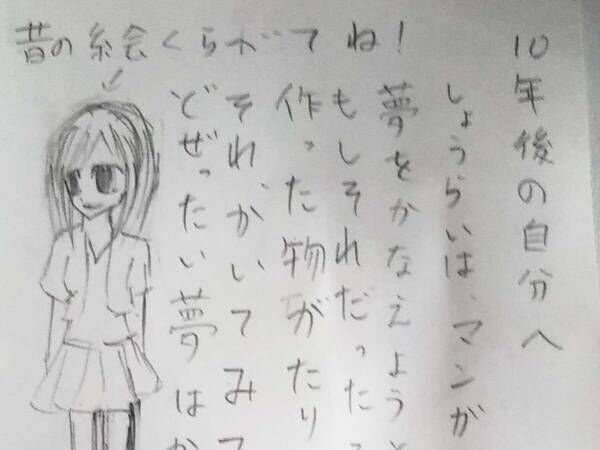 10年後の自分へ
しょうらいは、マンガ
夢をかなえようと
もしそれだった
作った物がたり
それ、かいてみて
どぜったい夢はか
昔の絵くらがてね!